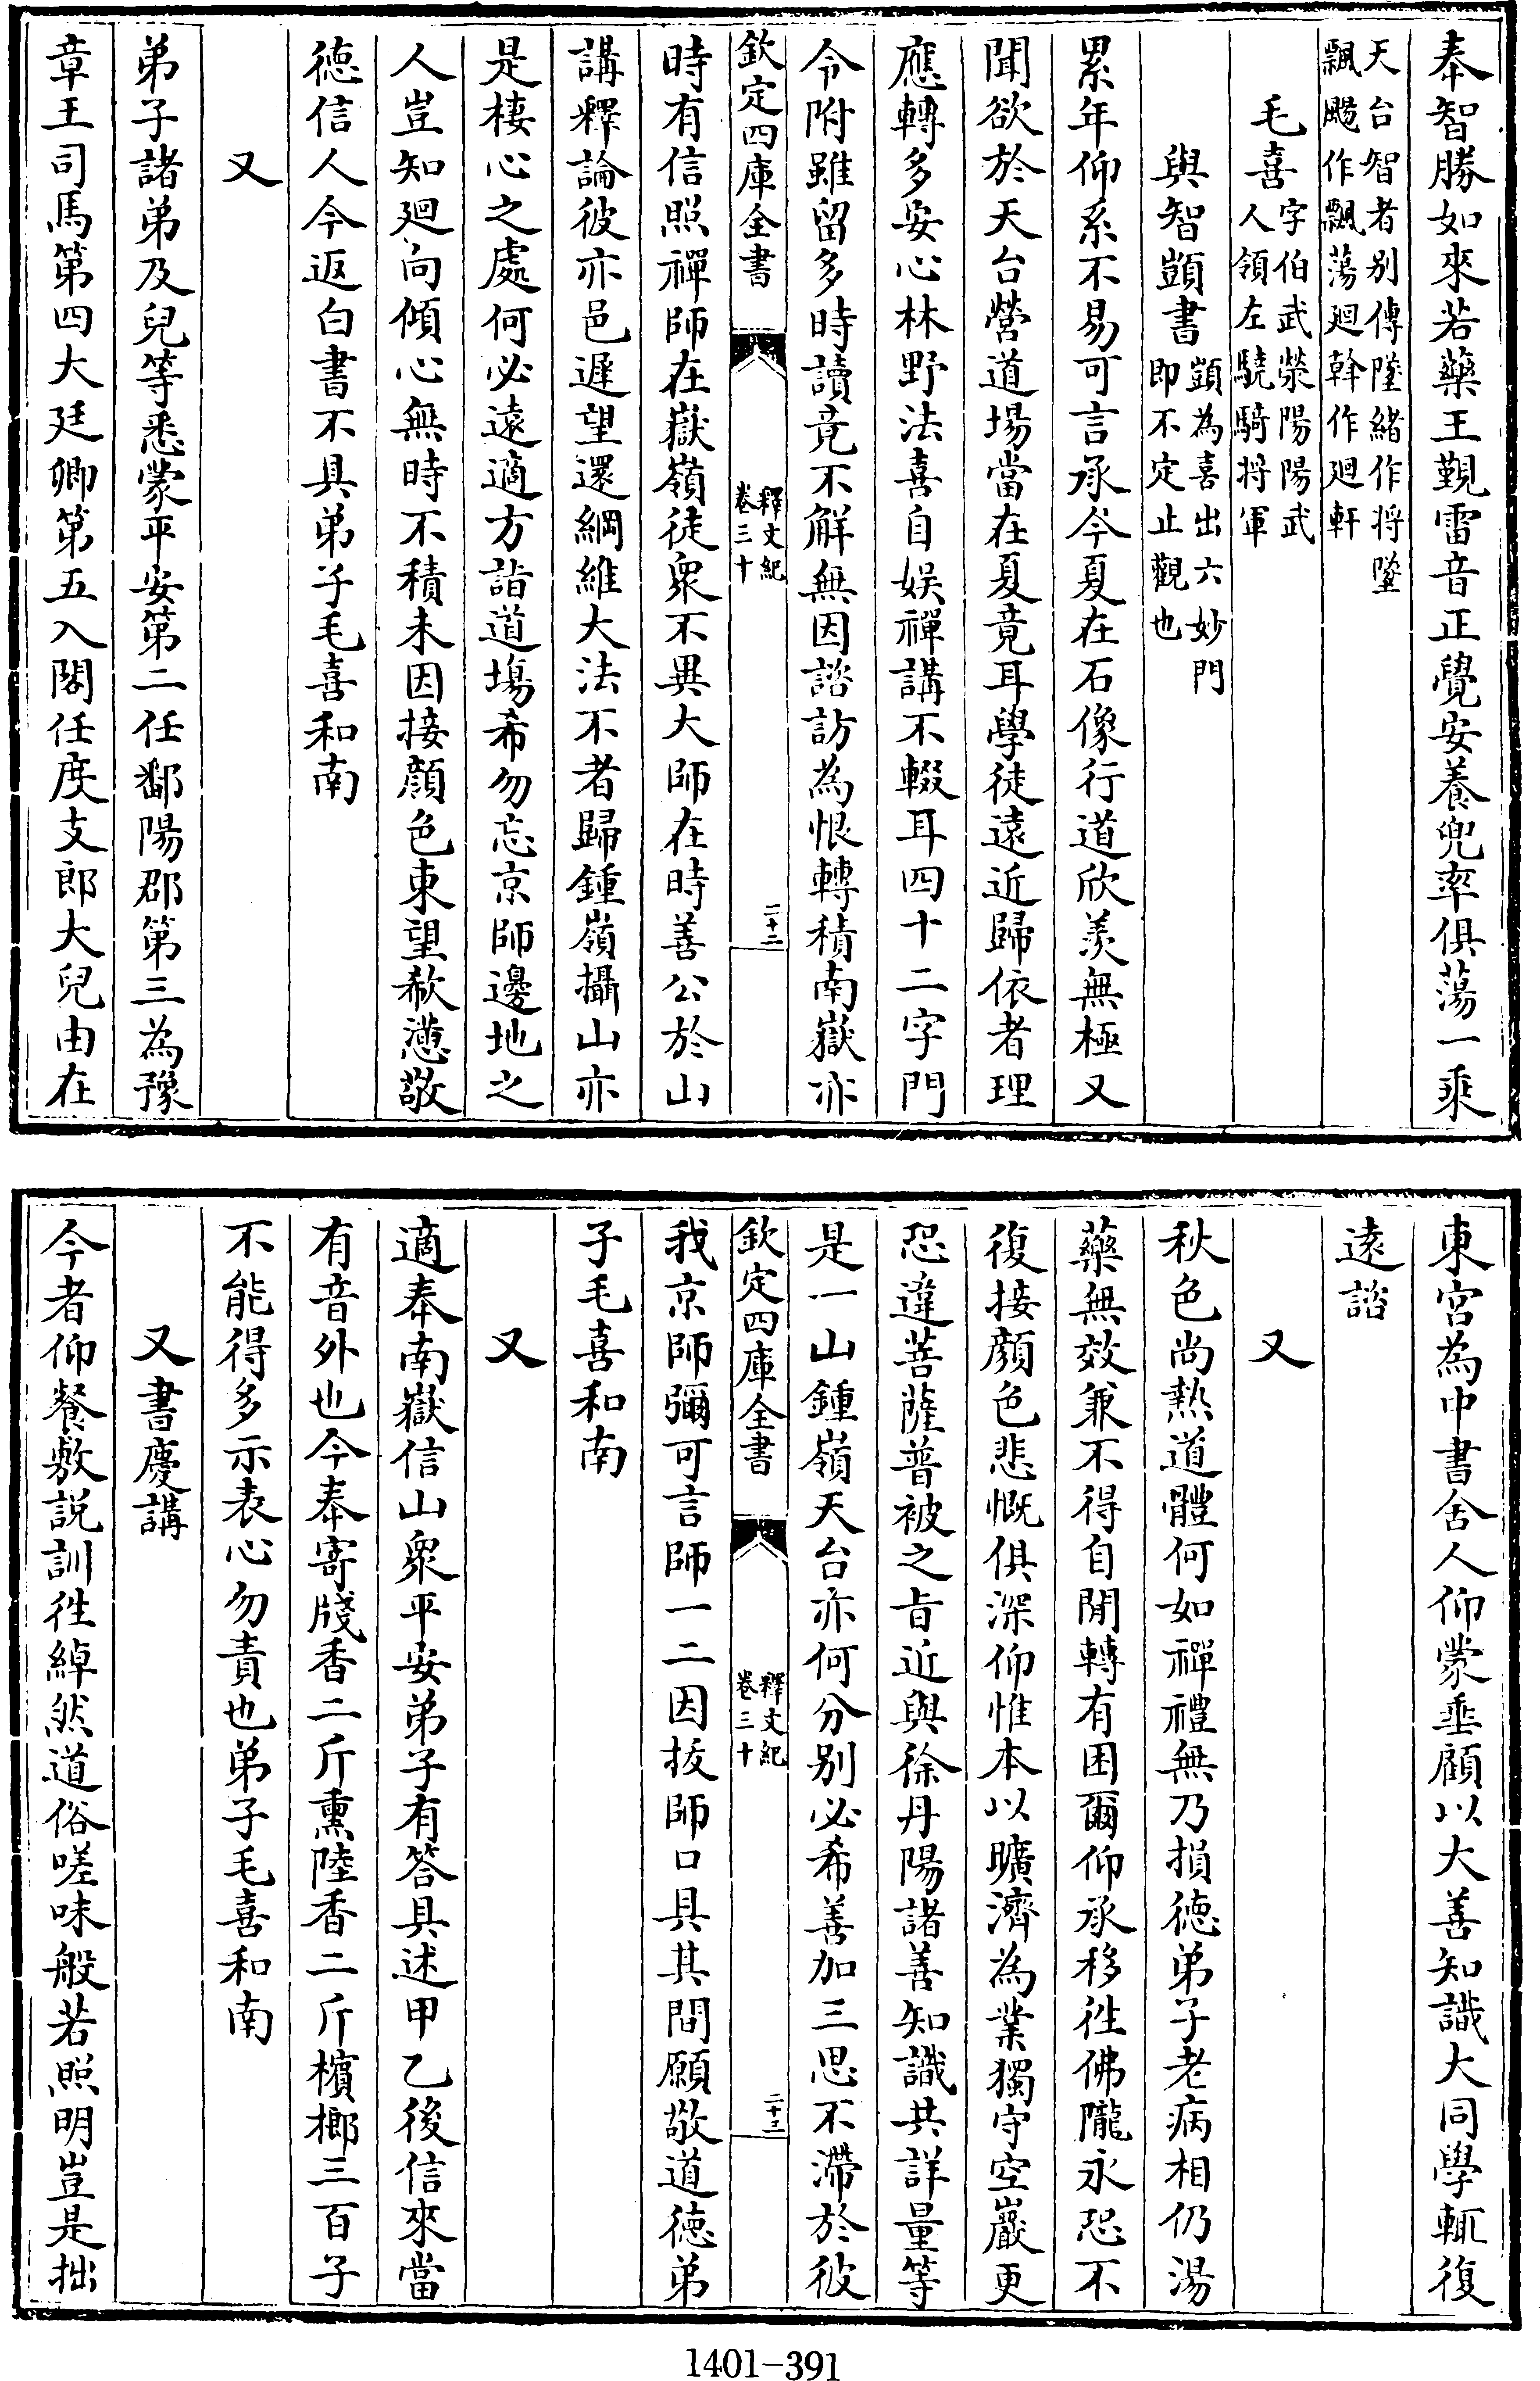 奉智勝如來若藥王覲雷音正覺安養兜率俱蕩一乘
天台智者别傳墜緒作将墜
飄飈作飄蕩廻斡作廻軒
毛喜字伯武滎陽陽武
人領左驍騎将軍
與智顗書顗為喜出六妙門
即不定止觀也
累年仰系不易可言承今夏在石像行道欣羨無極又
聞欲於天台營道場當在夏竟耳學徒遠近歸依者理
應轉多安心林野法喜自娛禪講不輟耳四十二字門
今附雖留多時讀竟不解無因諮訪為恨轉積南嶽亦
欽定四庫全書
釋文紀
卷三十
二十二
時有信照禪師在嶽嶺徒衆不異大師在時善公於山
講釋論彼亦邑遲望還綱維大法不者歸鍾嶺攝山亦
是棲心之處何必遠適方詣道塲希勿忘京師邊地之
人豈知廻向傾心無時不積未因接顔色東望欷懣敬
德信人今返白書不具弟子毛喜和南
又
弟子諸弟及兒等悉蒙平安第二任鄱陽郡第三為豫
章王司馬第四大廷卿第五入閣任度支郎大兒由在
東宮為中書舍人仰蒙垂顧以大善知識大同學輒復
遠諮
又
秋色尚熱道體何如禪禮無乃損德弟子老病相仍湯
藥無效兼不得自閒轉有困爾仰承移徃佛隴永恐不
復接顔色悲慨俱深仰惟本以曠濟為業獨守空巖更
恐違菩薩普被之旨近與徐丹陽諸善知識共詳量等
是一山鍾嶺天台亦何分别必希善加三思不滯於彼
欽定四庫全書
釋文紀
卷三十
二十三
我京師彌可言師一二因拔師口具其間願敬道德弟
子毛喜和南
又
適奉南嶽信山衆平安弟子有答具述甲乙後信來當
有音外也今奉寄牋香二斤熏陸香二斤檳榔三百子
不能得多示表心勿責也弟子毛喜和南
又書慶講
今者仰餐敷説訓徃綽然道俗嗟味般若照明豈是拙
1401-391